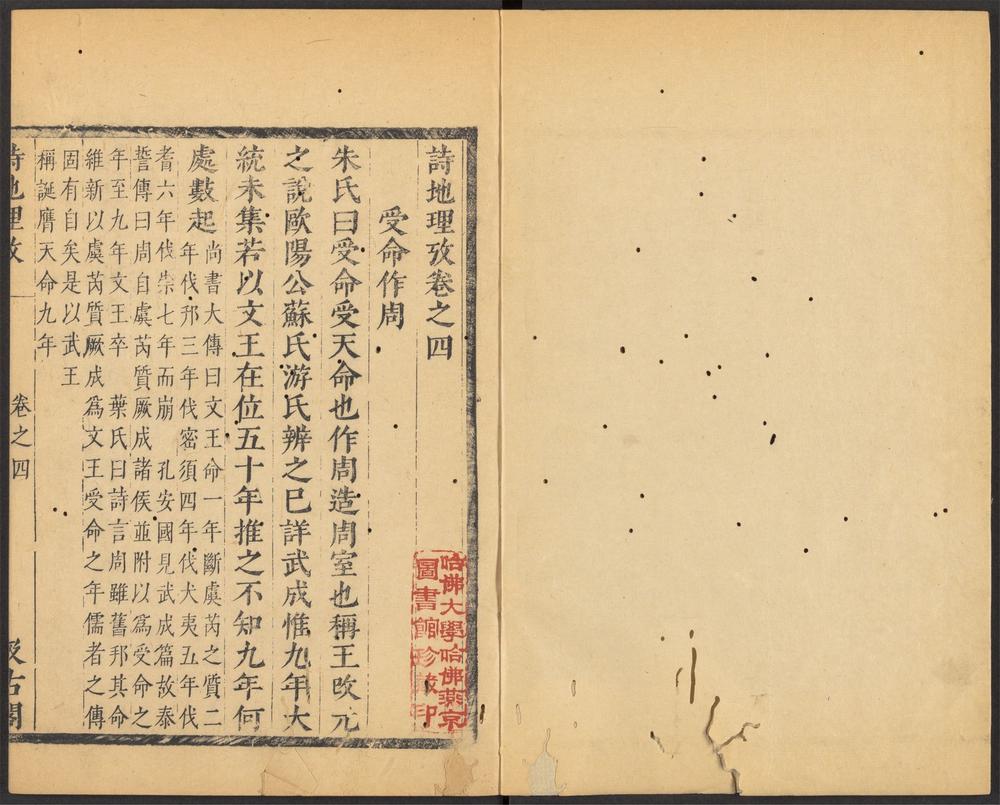 詩地理攷卷之四
受命作周
朱氏曰受命受天命也作周造周室也稱王改元
之說歐陽公蘇氏游氏辨之巳詳武成惟九年大
統未集若以文王在位五十年推之不知九年何
處數起
尚書大傳曰文王命一年斷虞芮之質二
年伐邘三年伐密須四年伐犬夷五年伐
耆六年伐崇七年而崩 孔安國見武成篇故泰
誓傳曰周自虞芮質厥成諸侯並附以爲受命之
年至九年文王卒 葉氏曰詩言周雖舊邦其命
維新以虞芮質厥成爲文王受命之年儒者之傳
固有自矣是以武王
稱誕膺天命九年
詩地理攷
卷之四
汲古閣
哈佛大學哈佛燕京
圖書館珍藏印